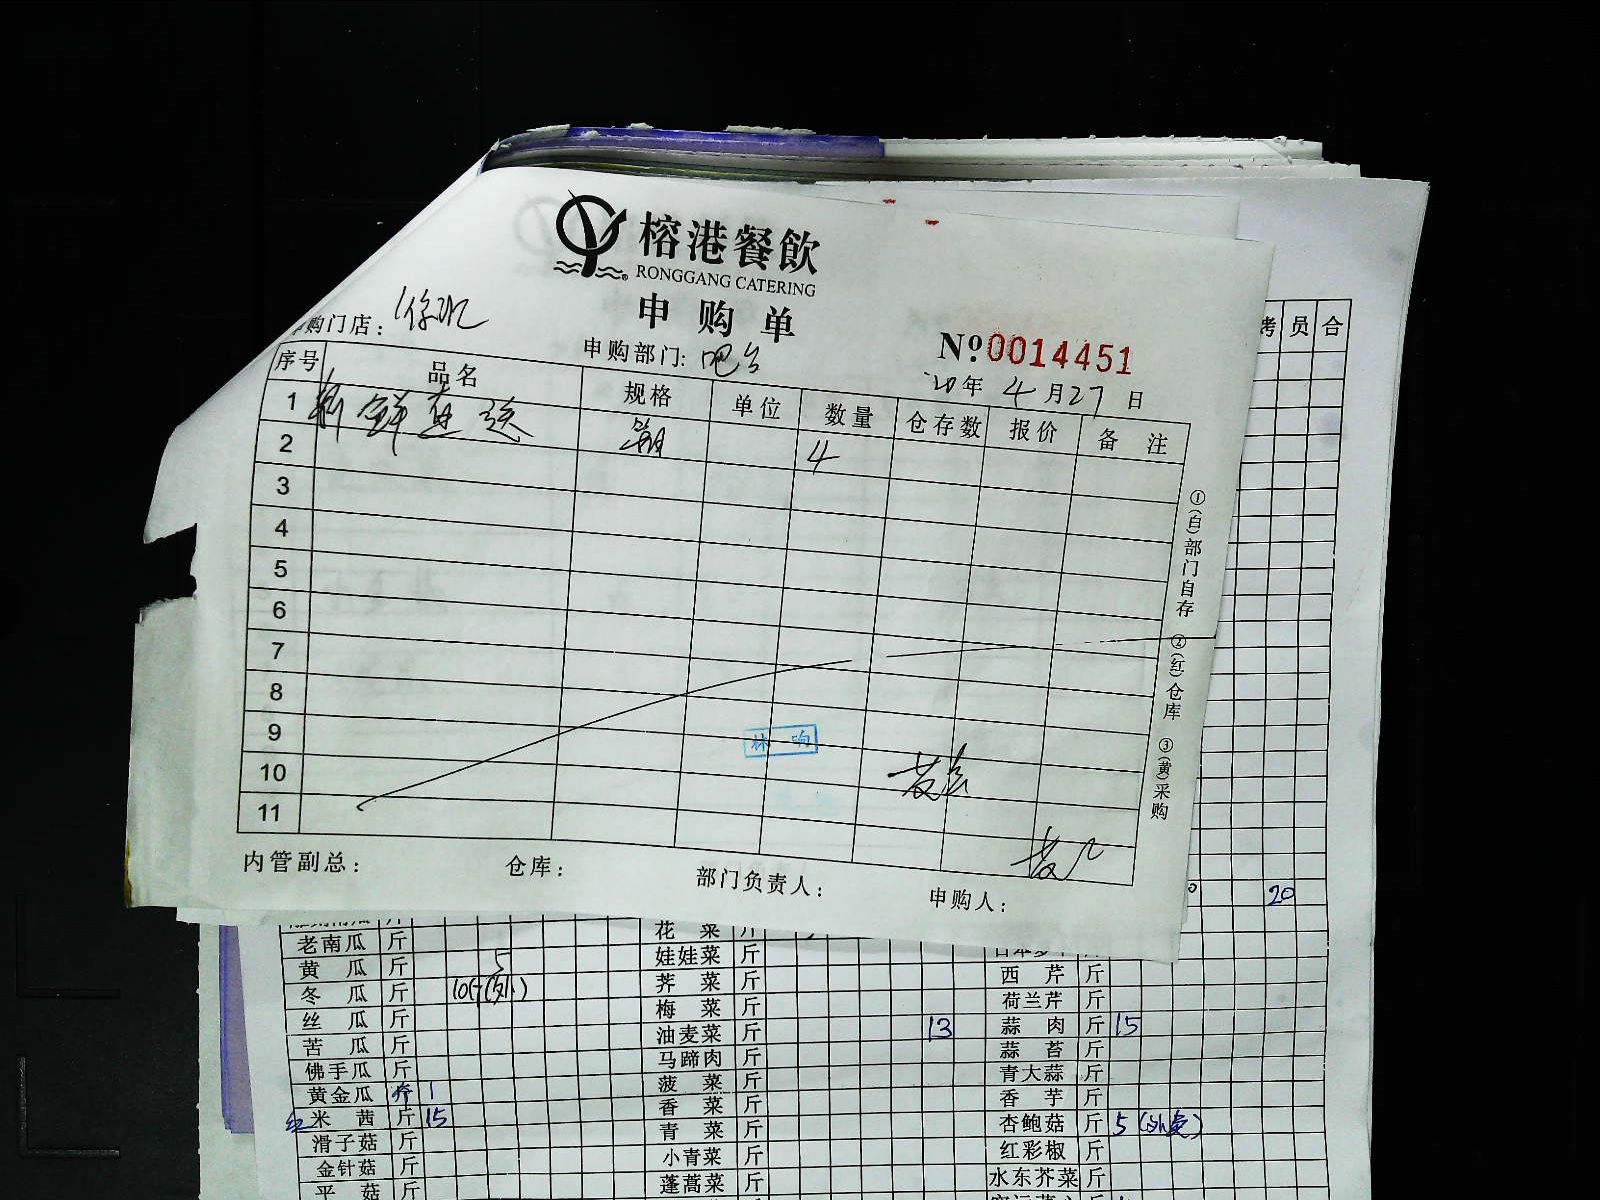 榕港餐飲
RONGGANG CATERING
申购单
购门店：
申购部门：吧台
Nº0014451
20年4月27日
序号 品名 规格 单位 数量 仓存数 报价 备注
1 新鲜
2 4
3
4
5
6
7
8
9
10
11
①(白)部门自存 ②(红)仓库 ③(黄)采购
林
内管副总： 仓库： 部门负责人： 申购人：
员 合
20
老南瓜 斤 花菜 斤
黄瓜 斤 5 娃娃菜 斤 西芹 斤
冬瓜 斤 荠菜 斤 荷兰芹 斤
丝瓜 斤 梅菜 斤 蒜肉 斤 15
苦瓜 斤 油麦菜 斤 13 蒜苔 斤
佛手瓜 斤 马蹄肉 斤 青大蒜 斤
黄金瓜 1 菠菜 斤 香芋 斤
红米茜 斤 15 香菜 斤 杏鲍菇 斤 5 (外卖)
滑子菇 斤 青菜 斤 红彩椒 斤
金针菇 斤 小青菜 斤 水东芥菜 斤
平菇 斤 蓬蒿菜 斤